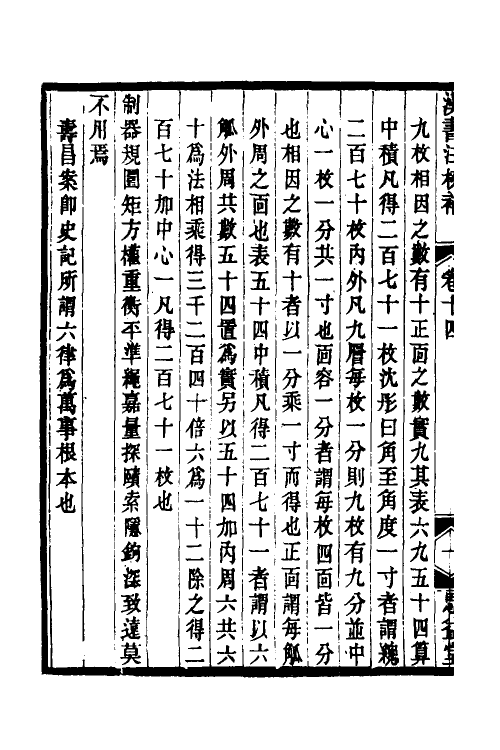 漢書注校補
卷十四
九枚相因之數有十正面之數實九其表六九五十四算
中積凡得二百七十一枚沈彤曰角至角度一寸者謂䚡
二百七十枚內外凡九層每枚一分則九枚有九分並中
心一枚一分共一寸也面容一分者謂每枚四面皆一分
也相因之數有十者以一分乘一寸而得也正面謂每觚
外周之面也表五十四中積凡得二百七十一者謂以六
觚外周共數五十四置為實另以五十四加內周六共六
十為法相乘得三千二百四十倍六為一十二除之得二
百七十加中心一凡得二百七十一枚也
制器規圜矩方權重衡平準繩嘉量探賾索隱鉤深致遠莫
不用焉
壽昌案即史記所謂六律為萬事根本也